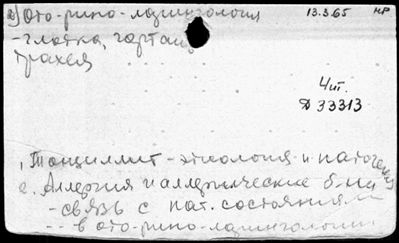 2) Ото-рино-ларингология 13.3.65 нр
- глотка, гортань,
трахея
4 шт.
Д 33313
1, Тонциллит - этиология и патогенез
2. Аллергия и аллергические б-ни
- связь с пат. состояниями
--- в ото-рино-ларингологии